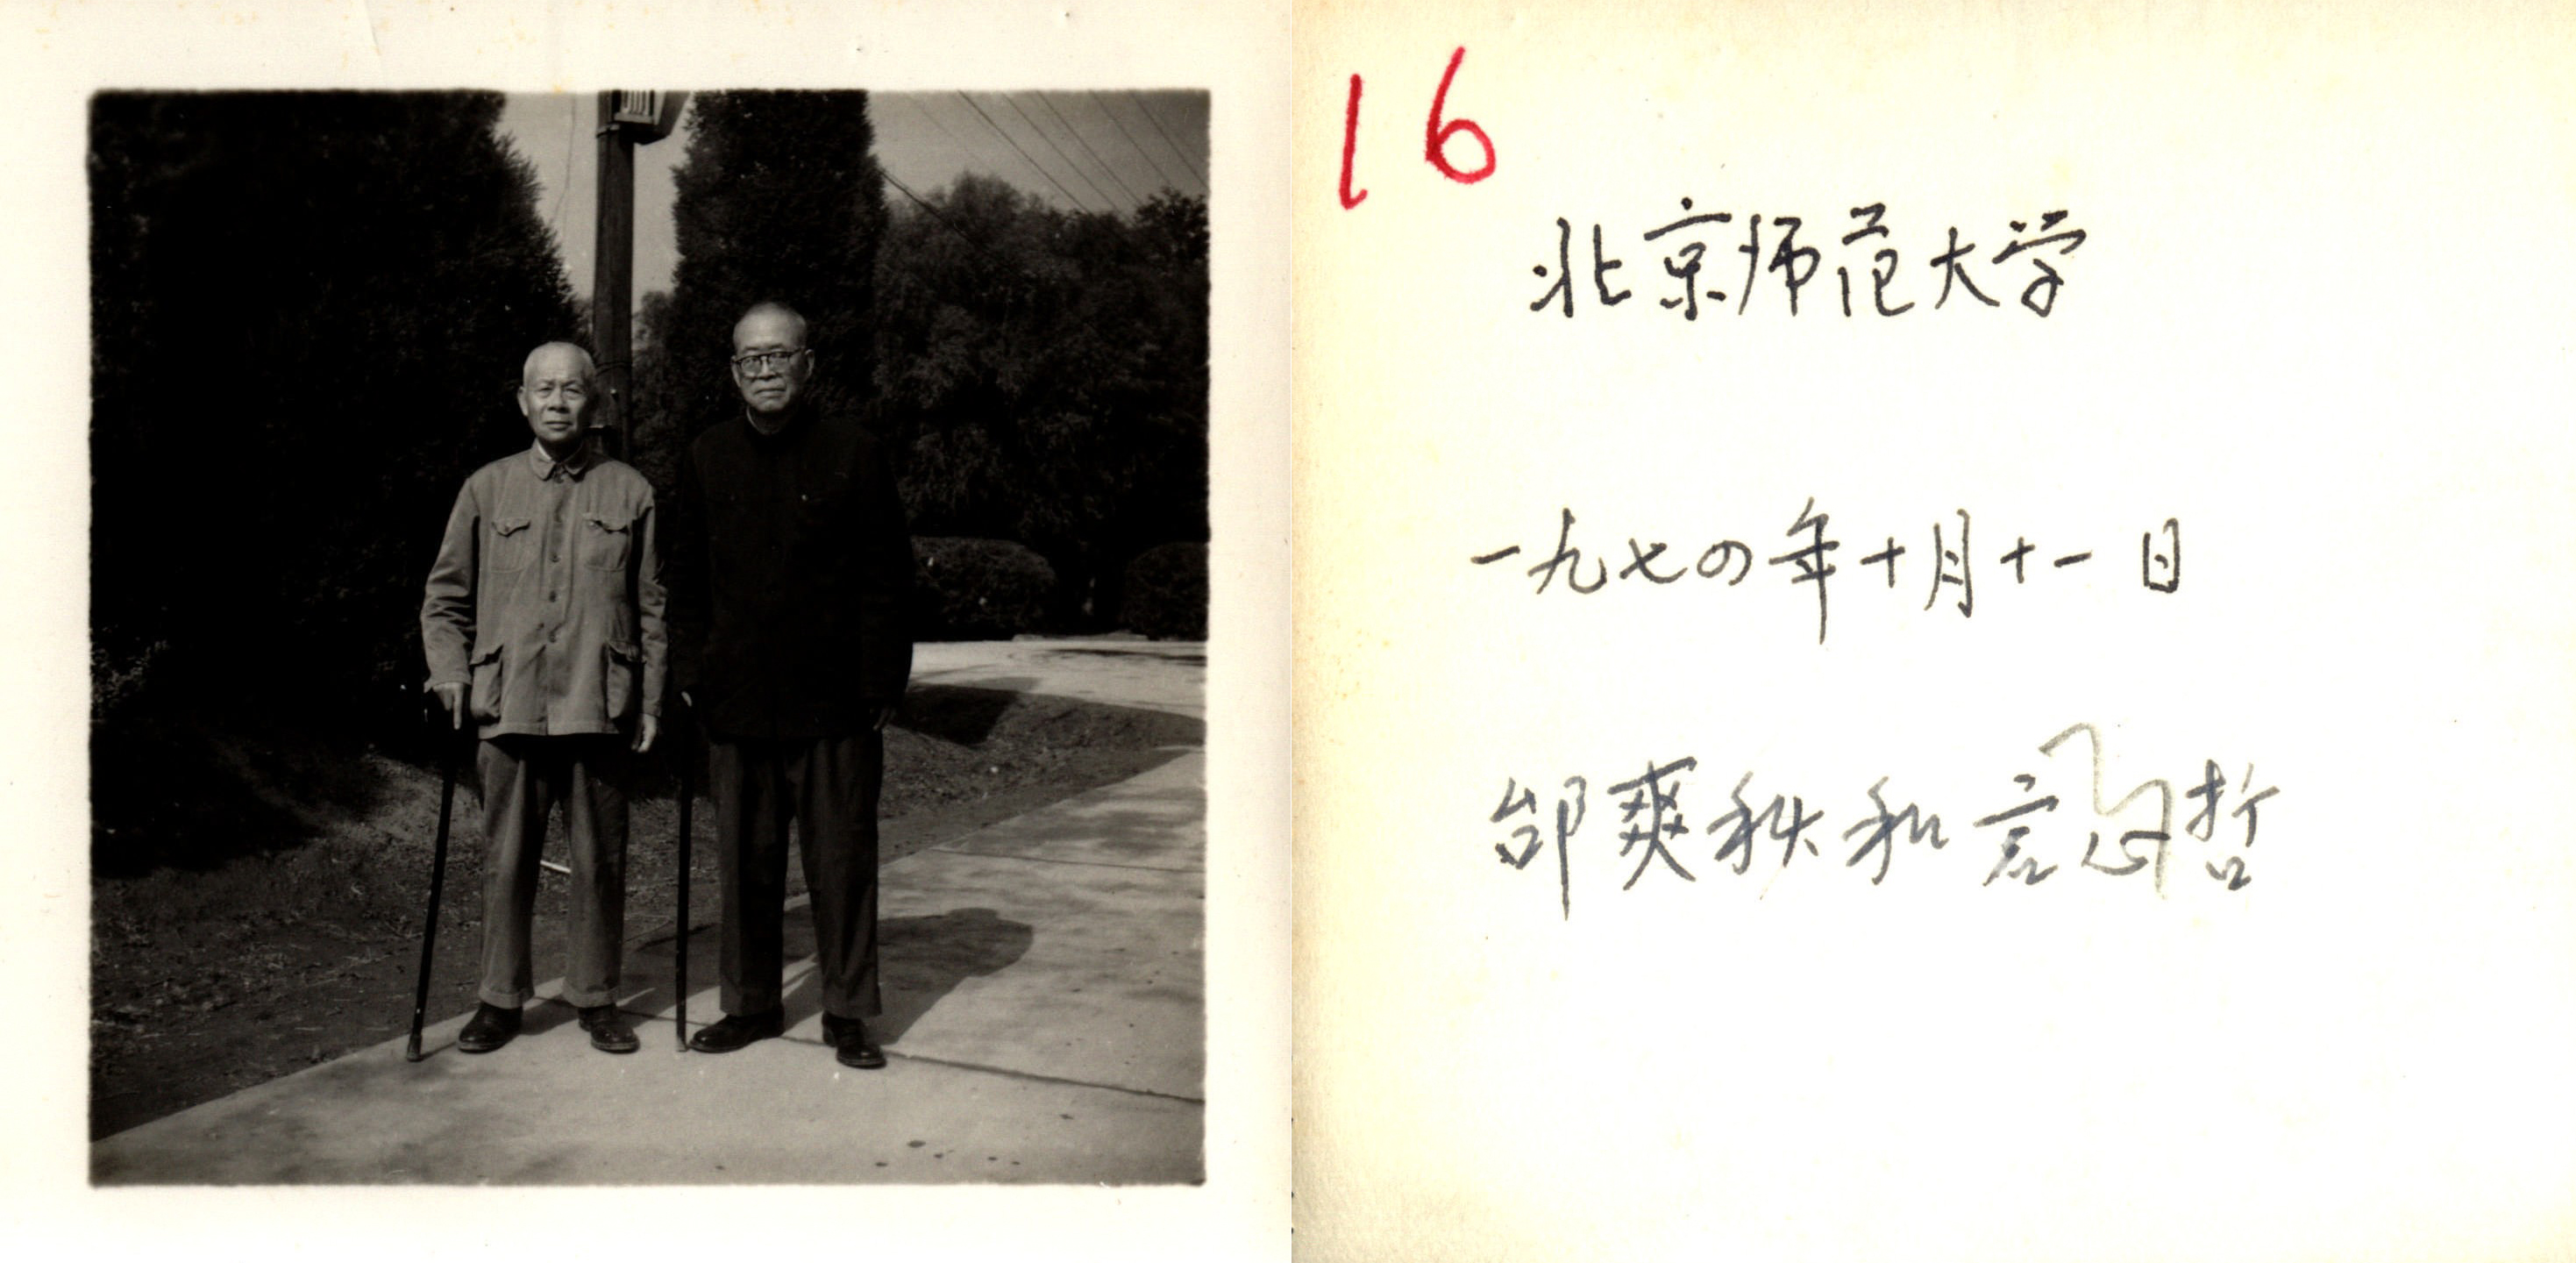 16
北京师范大学
一九七四年十月十一日
邰爽秋和言心哲